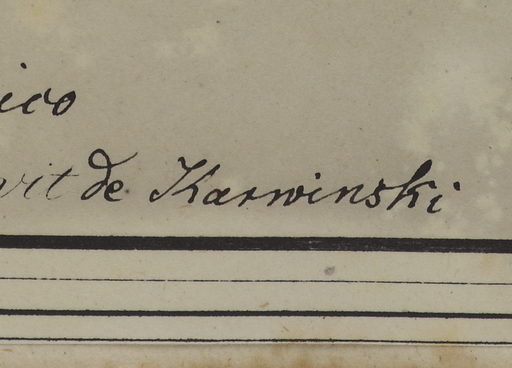 ico
vit de Karwinski